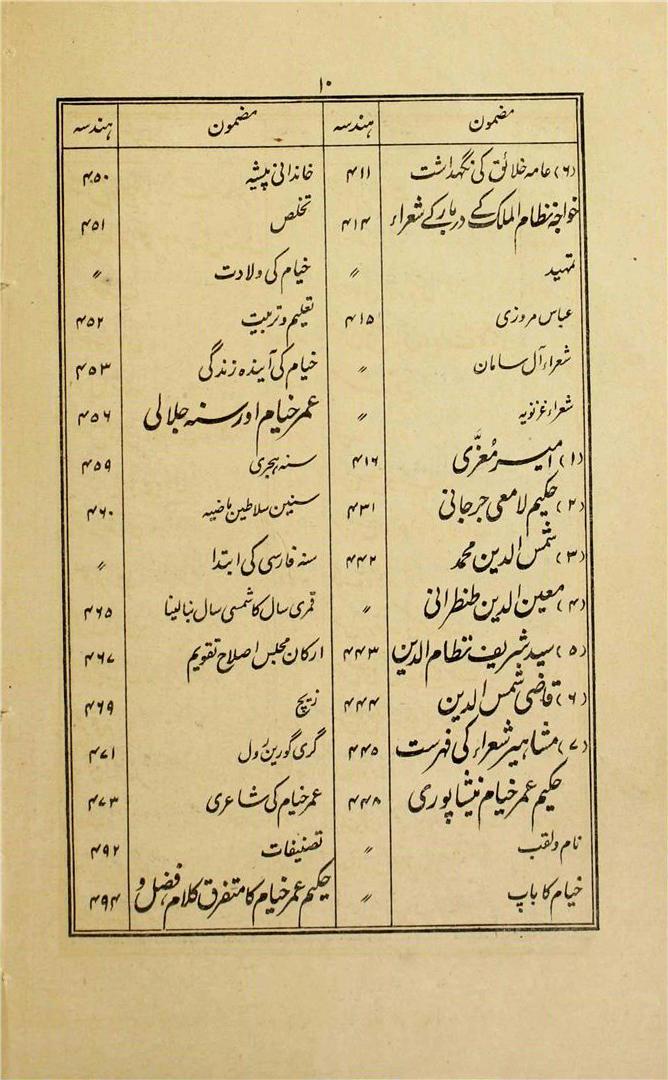 ۱۰
مضمون ہندسہ
(۶) عامہ خلائق کی نگہداشت ۴۱۱
خواجہ نظام الملک کے دربار کے شعراء ۴۱۴
تمہید 〃
عباس مروزی ۴۱۵
شعراء آل سامان 〃
شعراء غزنویہ 〃
(۱) امیر معزّی ۴۱۶
(۲) حکیم لامعی جرجانی ۴۳۱
(۳) شمس الدین محمد ۴۴۲
(۴) معین الدین طنطرانی 〃
(۵) سید شریف نظام الدین ۴۴۳
(۶) قاضی شمس الدین ۴۴۴
(۷) مشاہیر شعراء کی فہرست ۴۴۵
حکیم عمر خیام نیشاپوری ۴۴۸
نام ولقب 〃
خیام کا باپ 〃
مضمون ہندسہ
خاندانی پیشہ ۴۵۰
تخلص ۴۵۱
خیام کی ولادت 〃
تعلیم و تربیت ۴۵۲
خیام کی آیندہ زندگی ۴۵۳
عمر خیام اور سنہ جلالی ۴۵۶
سنہ ہجری ۴۵۹
سنین سلاطین ماضیہ ۴۶۰
سنہ فارسی کی ابتدا 〃
قمری سال کا شمسی سال بنا لینا ۴۶۵
ارکان مجلس اصلاح تقویم ۴۶۷
زیچ ۴۶۹
گری گورین رول ۴۷۱
عمر خیام کی شاعری ۴۷۳
تصنیفات ۴۹۲
حکیم عمر خیام کا متفرق کلام، فضل و ۴۹۴